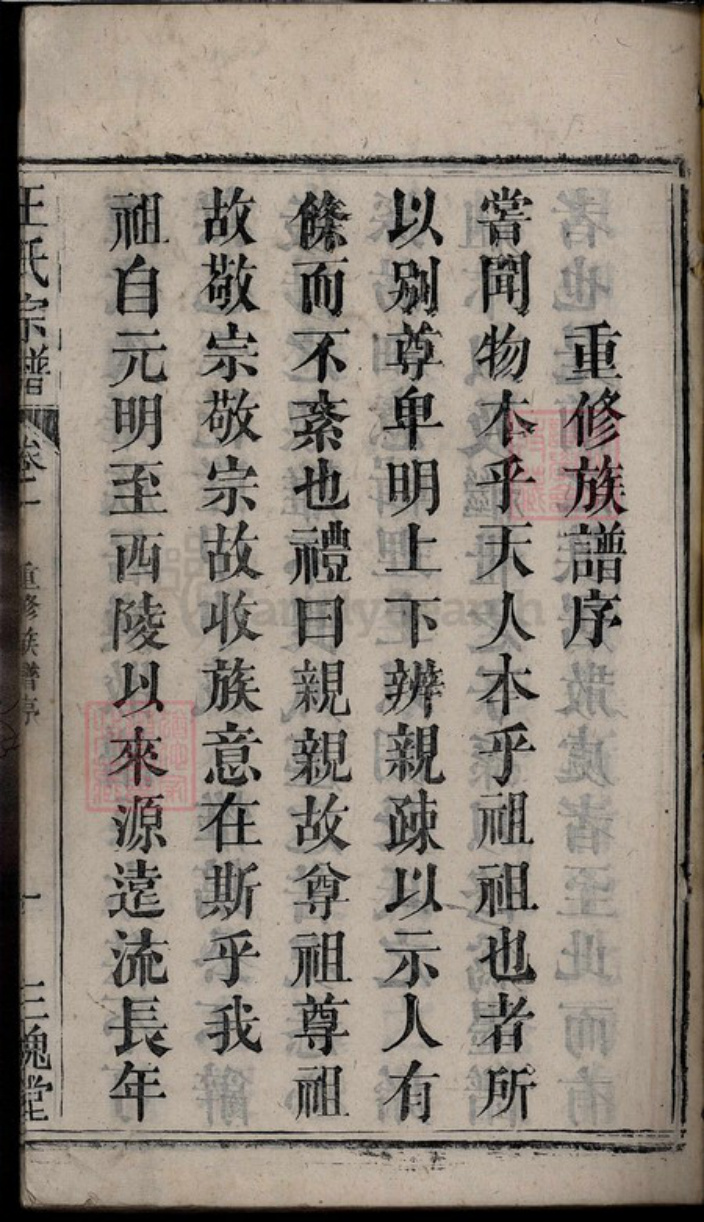 重修族譜序
嘗聞物本乎天人本乎祖祖也者所
以别尊卑明上下辨親疎以示人有
條而不紊也禮曰親親故尊祖尊祖
故敬宗敬宗故收族意在斯乎我
祖自元明至西陵以來源遠流長年
王氏宗譜
卷一 重修族譜序 一 三槐堂